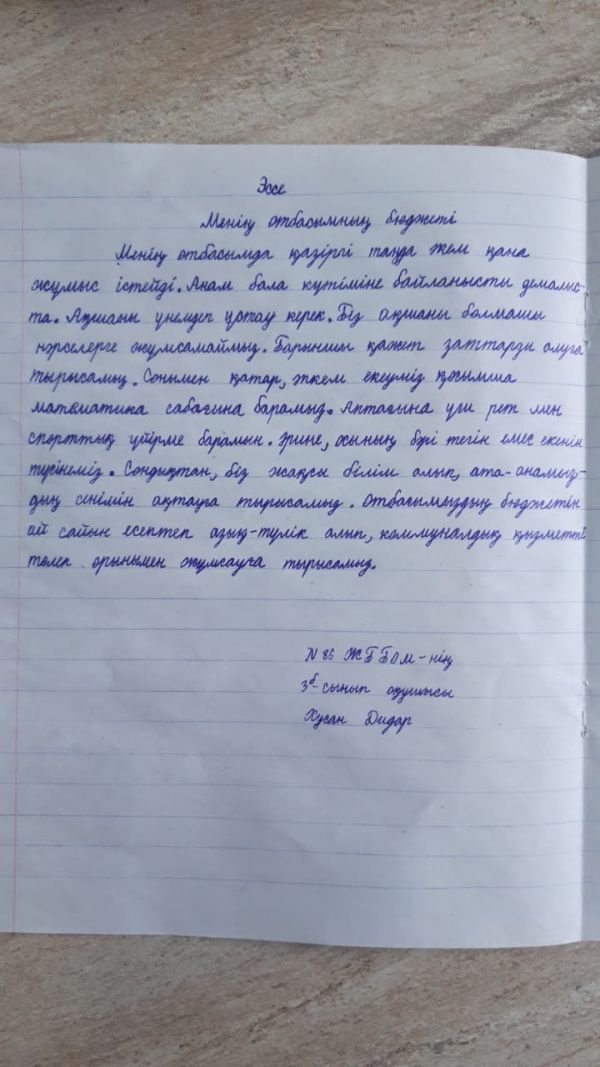 Эссе
Менің отбасымның бюджеті
Менің отбасымда қазіргі таңда әкем қана
жұмыс істейді. Анам бала күтіміне байланысты демалыс-
та. Ақшаны үнемдеп ұстау керек. Біз ақшаны болмашы
нәрселерге жұмсамаймыз. Барынша қажет заттарды алуға
тырысамыз. Сонымен қатар, әпкем екеуміз қосымша
математика сабағына барамыз. Аптасына үш рет мен
спорттық үйірме барамын. Әрине, осының бәрі тегін емес екенін
түсінеміз. Сондықтан, біз жақсы білім алып, ата-анамыз-
дың сенімін ақтауға тырысамыз. Отбасымыздың бюджетін
ай сайын есептеп азық-түлік алып, коммуналдық қызметті
төлеп орынымен жұмсауға тырысамыз.
N 86 ЖББОМ-нің
3"б"-сынып оқушысы
Хусан Дидар